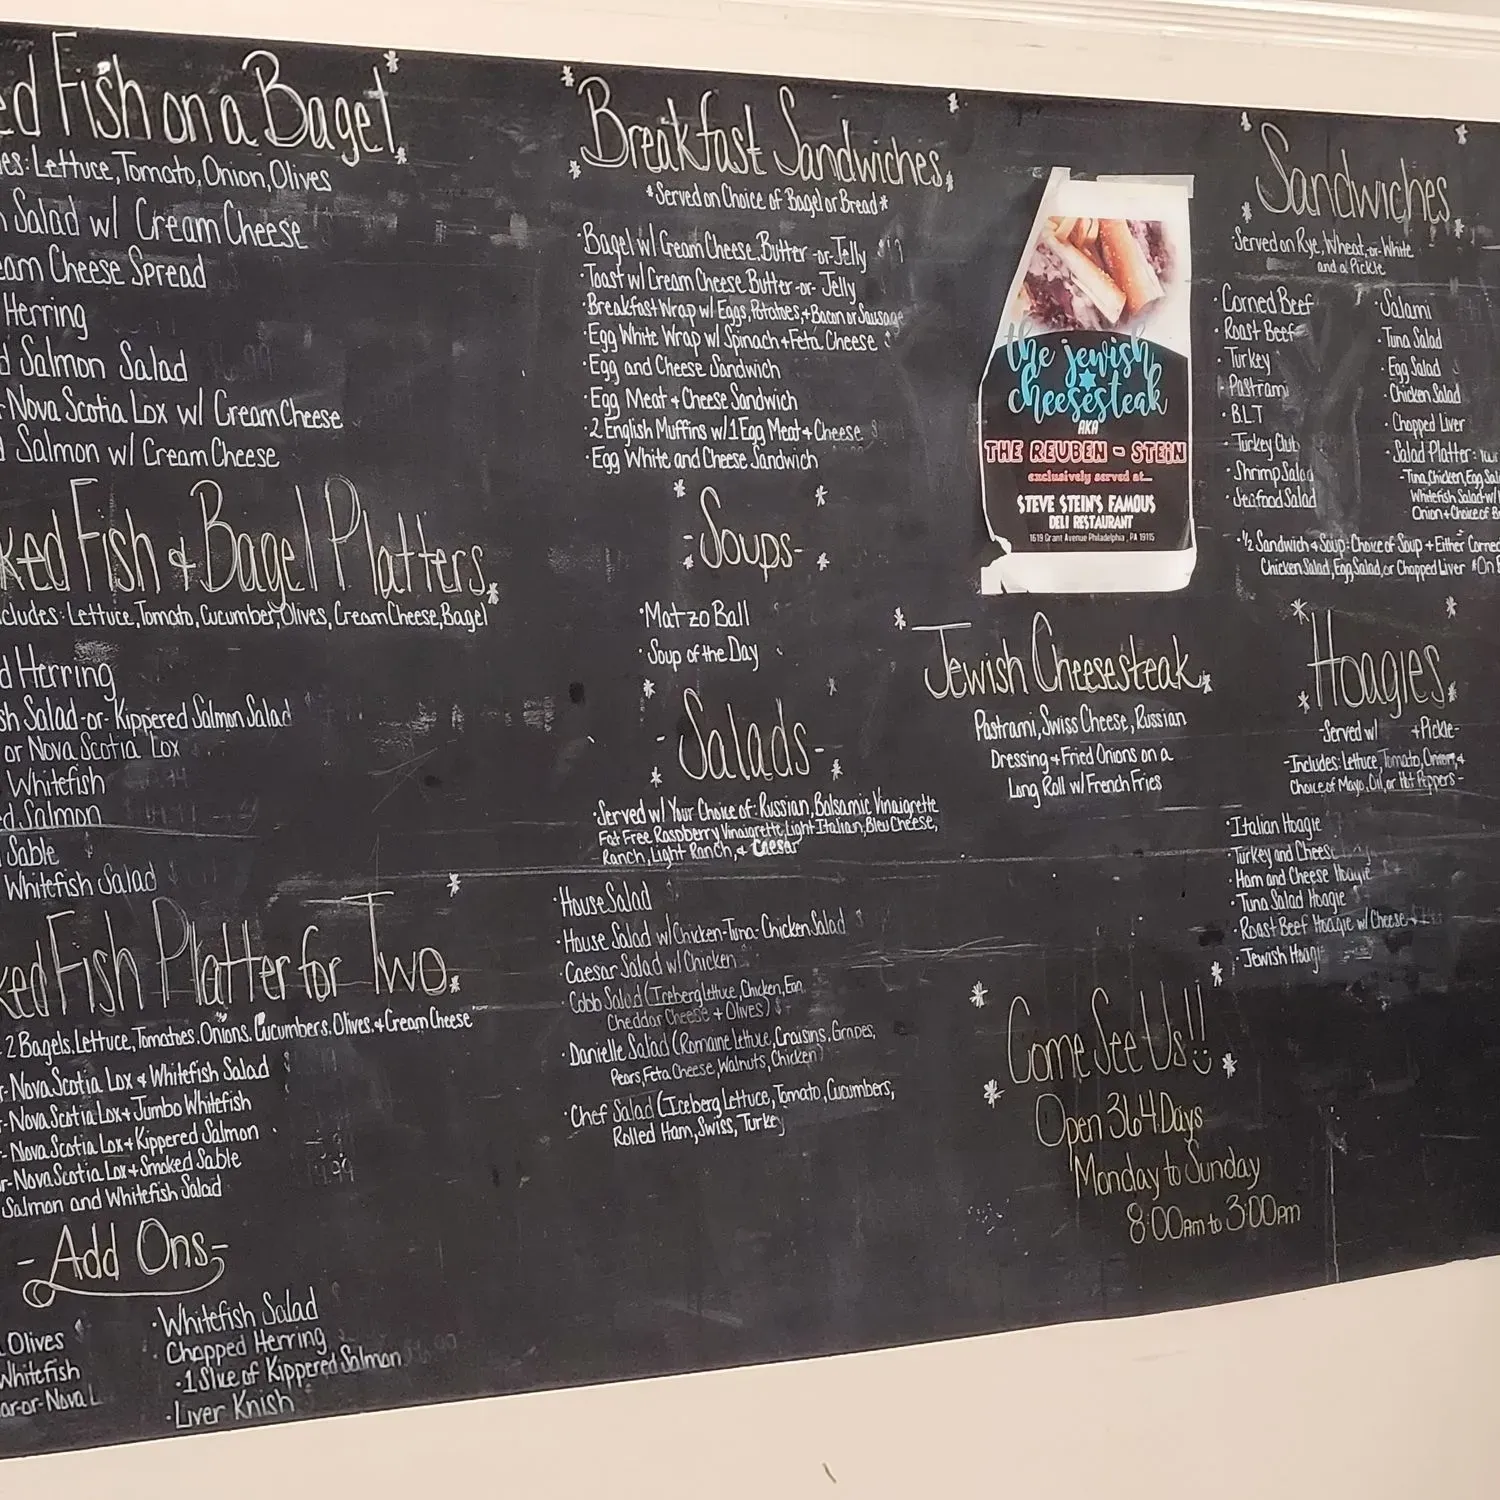 ed Fish on a Bagel
es: Lettuce, Tomato, Onion, Olives
Salad w/ Cream Cheese
eam Cheese Spread
Herring
d Salmon Salad
-Nova Scotia Lox w/ Cream Cheese
d Salmon w/ Cream Cheese
ked Fish & Bagel Platters
cludes: Lettuce, Tomato, Cucumber, Olives, Cream Cheese, Bagel
d Herring
sh Salad -or- Kippered Salmon Salad
or Nova Scotia Lox
Whitefish
d Salmon
Sable
Whitefish Salad
ked Fish Platter for Two
2 Bagels, Lettuce, Tomatoes, Onions, Cucumbers, Olives, + Cream Cheese
r-Nova Scotia Lox & Whitefish Salad
r-Nova Scotia Lox + Jumbo Whitefish
- Nova Scotia Lox + Kippered Salmon
r-Nova Scotia Lox + Smoked Sable
Salmon and Whitefish Salad
-Add Ons-
Olives
Whitefish
ar-or-Nova L
·Whitefish Salad
Chopped Herring
·1 Slice of Kippered Salmon
·Liver Knish
Breakfast Sandwiches
*Served on Choice of Bagel or Bread*
·Bagel w/ Cream Cheese, Butter -or- Jelly
·Toast w/ Cream Cheese Butter -or- Jelly
·Breakfast Wrap w/ Eggs, Potatoes, + Bacon or Sausage
·Egg White Wrap w/ Spinach + Feta Cheese
·Egg and Cheese Sandwich
·Egg Meat + Cheese Sandwich
·2 English Muffins w/ 1 Egg Meat + Cheese
·Egg White and Cheese Sandwich
-Soups-
·Matzo Ball
·Soup of the Day
-Salads-
·Served w/ Your Choice of: Russian, Balsamic Vinaigrette
Fat Free Raspberry Vinaigrette, Light Italian, Bleu Cheese,
Ranch, Light Ranch, & Caesar
·House Salad
·House Salad w/ Chicken-Tuna- Chicken Salad
·Caesar Salad w/ Chicken
·Cobb Salad (Iceberg Lettuce, Chicken, Egg,
Cheddar Cheese + Olives)
·Danielle Salad (Romaine Lettuce, Craisins, Grapes,
Pears, Feta Cheese, Walnuts, Chicken)
·Chef Salad (Iceberg Lettuce, Tomato, Cucumbers,
Rolled Ham, Swiss, Turkey
the jewish
cheesesteak
AKA
THE REUBEN - STEIN
exclusively served at...
STEVE STEIN'S FAMOUS
DELI RESTAURANT
1619 Grant Avenue Philadelphia, PA 19115
Jewish Cheesesteak
Pastrami, Swiss Cheese, Russian
Dressing + Fried Onions on a
Long Roll w/ French Fries
Sandwiches
·Served on Rye, Wheat, -or- White
and a Pickle
·Corned Beef
·Roast Beef
·Turkey
·Pastrami
·B.L.T
·Turkey Club
·Shrimp Salad
·Seafood Salad
·Salami
·Tuna Salad
·Egg Salad
·Chicken Salad
·Chopped Liver
·Salad Platter:
-Tuna, Chicken, Egg Sal
Whitefish Salad w/
Onion + Choice of B
·½ Sandwich & Soup: Choice of Soup + Either Corned
Chicken Salad, Egg Salad, or Chopped Liver
Hoagies
-Served w/ + Pickle-
-Includes: Lettuce, Tomato, Onion, +
Choice of Mayo, Oil, or Hot Peppers-
·Italian Hoagie
·Turkey and Cheese
·Ham and Cheese Hoagie
·Tuna Salad Hoagie
·Roast Beef Hoagie w/ Cheese
·Jewish Hoagi
Come See Us!!
Open 364 Days
Monday to Sunday
8:00 am to 3:00 pm